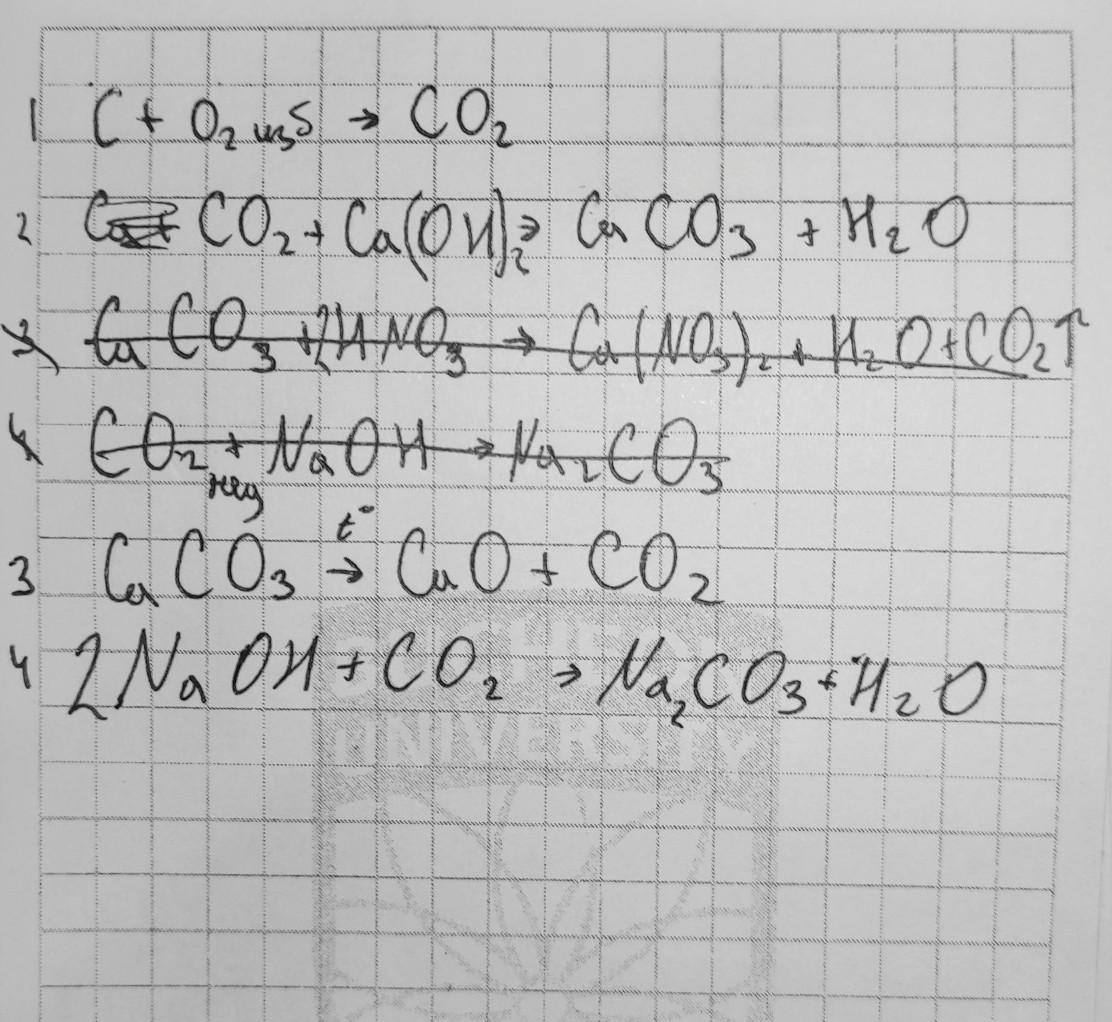 1 C + O₂ изб → CO₂
2 CO₂ + Ca(OH)₂ → CaCO₃ + H₂O
3 CaCO₃ + 2HNO₃ → Ca(NO₃)₂ + H₂O + CO₂↑
4 CO₂ + NaOH → Na₂CO₃
нед
t°
3 CaCO₃ → CaO + CO₂
4 2NaOH + CO₂ → Na₂CO₃ + H₂O
UNIVERSITY